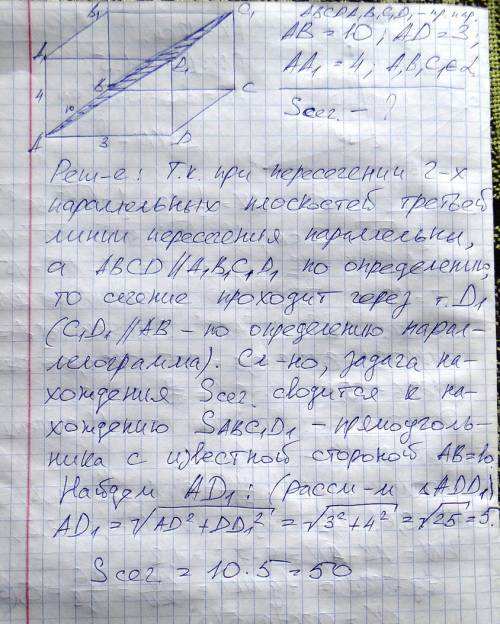 ABCDA₁B₁C₁D₁ – пр. пар.
AB = 10; AD = 3,
AA₁ = 4; A, B, C₁ ∈ α
Sсег. – ?
B₁
C₁
A₁
D₁
4
10
B
C
A
3
D
Реш-е: Т.к. при пересегении 2-х
параллельных плоскостей третьей
линии пересегения параллельны,
а ABCD // A₁B₁C₁D₁ по определению,
то сегение проходит герез т. D₁
(C₁D₁ // AB – по определению парал-
лелограмма). Сл-но, задага на-
хождения Sсег. сводится к на-
хождению SABC₁D₁ – прямоуголь-
ника с известной стороной AB=10
Найдем AD₁: (рассм-м ΔADD₁)
AD₁ = √AD² + DD₁² = √3² + 4² = √25 = 5
Sсег = 10·5 = 50